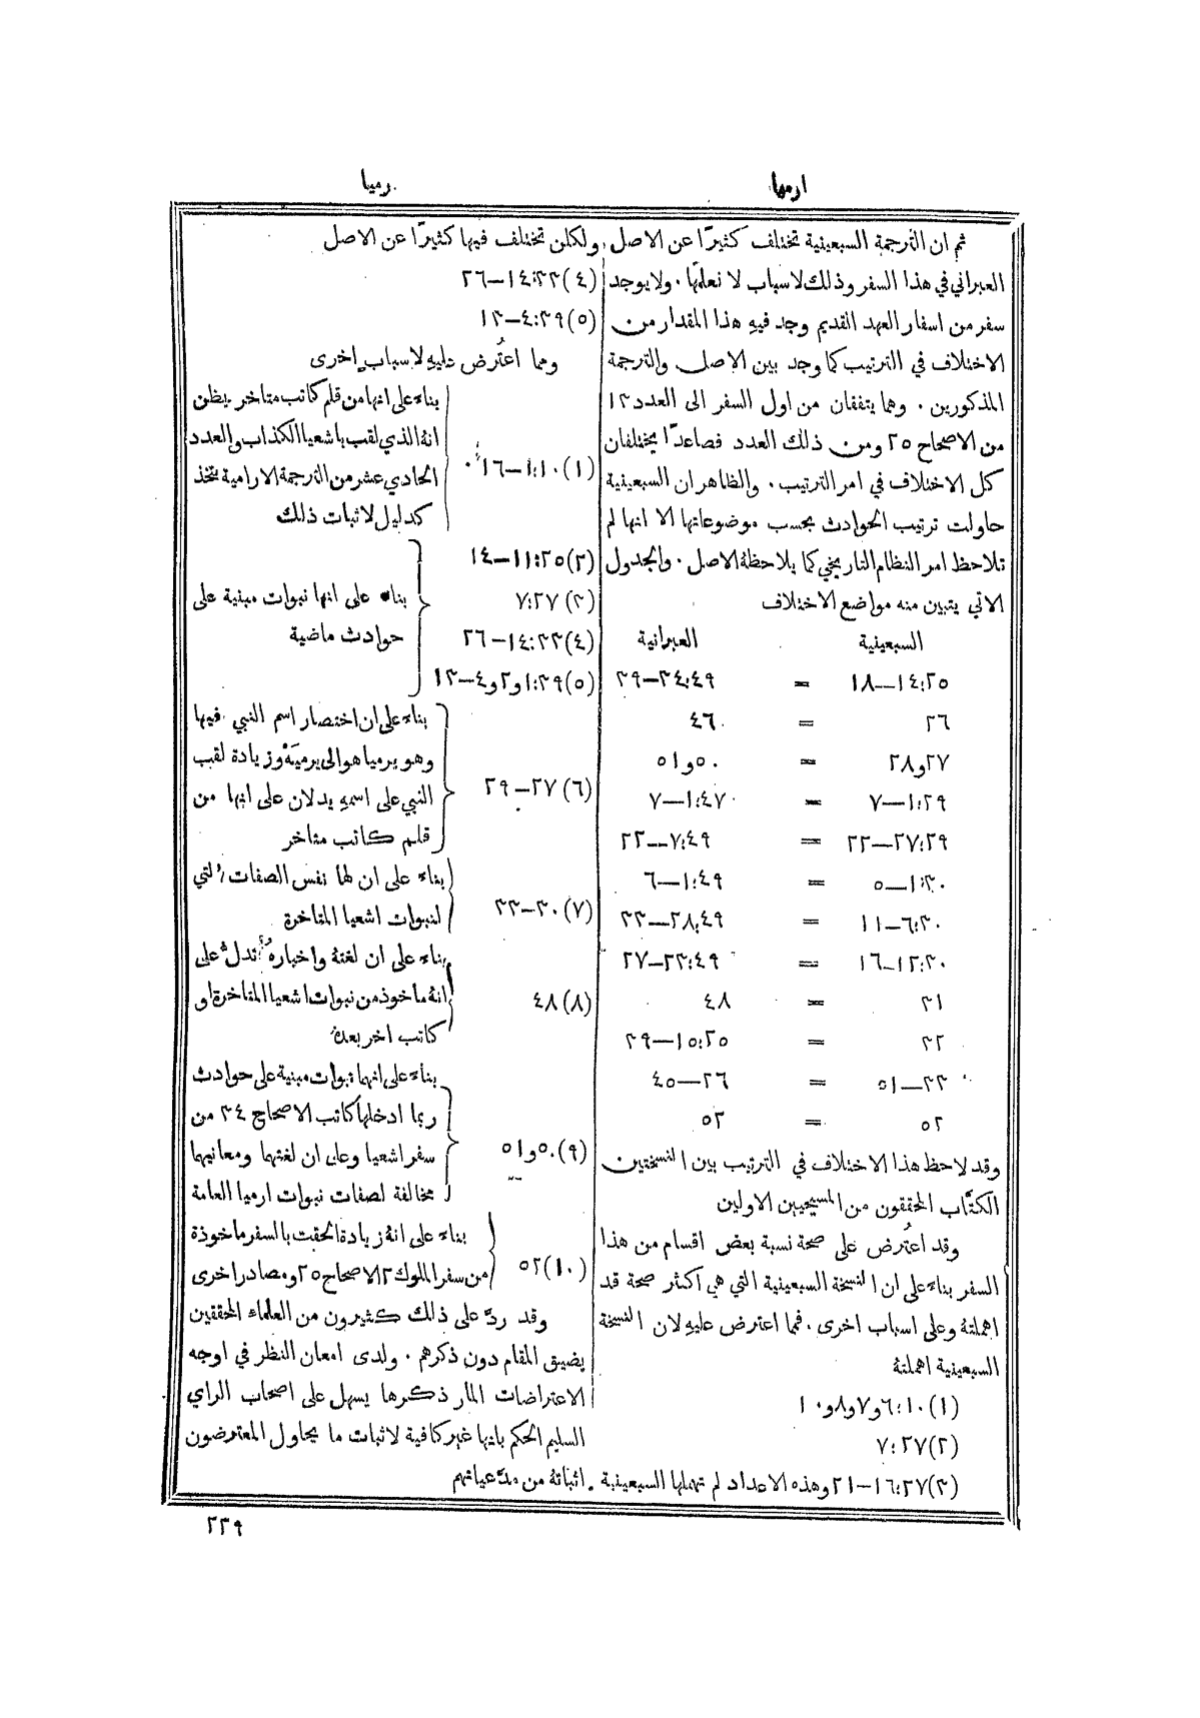 ارميا
رميا
ثم ان الترجمة السبعينية تختلف كثيرًا عن الاصل
العبراني في هذا السفر وذلك لاسباب لا نعلمها . ولا يوجد
سفر من اسفار العهد القديم وجد فيهِ هذا المقدار من
الاختلاف في الترتيب كما وجد بين الاصل والترجمة
المذكورين . وهما يتفقان من اول السفر الى العدد ١٣
من الاصحاح ٢٥ ومن ذلك العدد فصاعدًا يختلفان
كل الاختلاف في امر الترتيب . والظاهر ان السبعينية
حاولت ترتيب الحوادث بحسب موضوعاتها الا انها لم
تلاحظ امر النظام التاريخي كما يلاحظهُ الاصل . والجدول
الاتي يتبين منه مواضع الاختلاف
السبعينية العبرانية
٢٥:‏١٤—١٨ = ٤٩:‏٣٤—٣٩
٢٦ = ٤٦
٢٧ و٢٨ = ٥٠ و٥١
٢٩:‏١—٧ = ٤٧:‏١—٧
٢٩:‏٢٧—٢٢ = ٤٩:‏٧—٢٢
٣٠:‏١—٥ = ٤٩:‏١—٦
٣٠:‏٦—١١ = ٤٩:‏٢٨—٣٣
٣٠:‏١٢—١٦ = ٤٩:‏٢٣—٢٧
٣١ = ٤٨
٣٢ = ٢٥:‏١٥—٣٩
٣٣—٥١ = ٢٦—٤٥
٥٢ = ٥٢
وقد لاحظ هذا الاختلاف في الترتيب بين النسختين
الكتَّاب المحققون من المسيحيين الاولين
وقد اعتُرض على صحة نسبة بعض اقسام من هذا
السفر بناءً على ان النسخة السبعينية التي هي اكثر صحة قد
اهملتهُ وعلى اسباب اخرى . فما اعترض عليهِ لان النسخة
السبعينية اهملتهُ
(١) ١٠:‏٦ و٧ و٨ و١٠
(٢) ٢٧:‏٧
(٣) ٢٧:‏١٦—٢١ وهذه الاعداد لم تهملها السبعينية
ولكن تختلف فيها كثيرًا عن الاصل
(٤) ٣٣:‏١٤—٢٦
(٥) ٣٩:‏٤—١٣
ومما اعتُرض عليهِ لاسباب اخرى
(١) ١٠:‏١—١٦
بناءً على انها من قلم كاتب متاخر يظن
انهُ الذي لقب باشعيا الكذاب والعدد
الحادي عشر من الترجمة الارامية تتخذ
كدليل لاثبات ذلك
(٢) ٢٥:‏١١—١٤
(٣) ٢٧:‏٧
(٤) ٣٣:‏١٤—٢٦
(٥) ٣٩:‏١ و٢ و٤—١٣
بناءً على انها نبوات مبنية على
حوادث ماضية
(٦) ٢٧—٢٩
بناءً على ان اختصار اسم النبي فيها
وهو يرميا هو الى يرميَهْ وزيادة لقب
النبي على اسمهِ يدلان على انها من
قلم كاتب متاخر
(٧) ٣٠—٣٣
بناءً على ان لها نفس الصفات التي
لنبوات اشعيا المتاخرة
(٨) ٤٨
بناءً على ان لغتهُ واخبارهُ تدل على
انهُ ماخوذ من نبوات اشعيا المتاخرة او
كاتب اخر بعدهُ
(٩) ٥٠ و٥١
بناءً على انهما نبوات مبنية على حوادث
ربما ادخلها كاتب الاصحاح ٣٤ من
سفر اشعيا وعلى ان لغتهما ومعانيهما
مخالفة لصفات نبوات ارميا العامة
(١٠) ٥٢
بناءً على انهُ زيادة الحقت بالسفر ماخوذة
من سفر الملوك ٢ الاصحاح ٢٥ ومصادر اخرى
وقد ردَّ على ذلك كثيرون من العلماء المحققين
يضيق المقام دون ذكرهم . ولدى امعان النظر في اوجه
الاعتراضات المار ذكرها يسهل على اصحاب الراي
السليم الحكم بانها غير كافية لاثبات ما يحاول المعترضون
اثباتهُ من مدَّعياتهم
٣٣٩